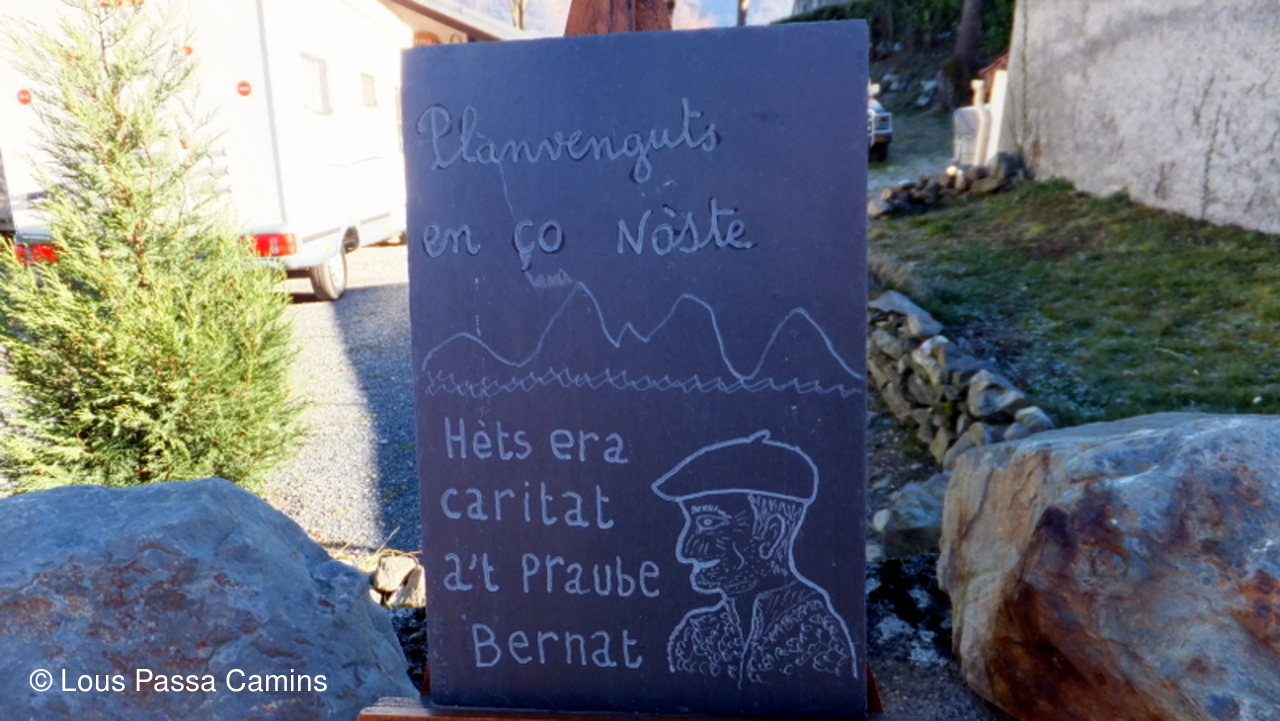 Planvenguts
en ço Nòste
Hèts era
caritat
a't Praube
Bernat
© Lous Passa Camins